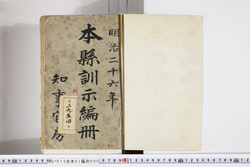 明治二十六年
本縣訓示編冊
知事官房